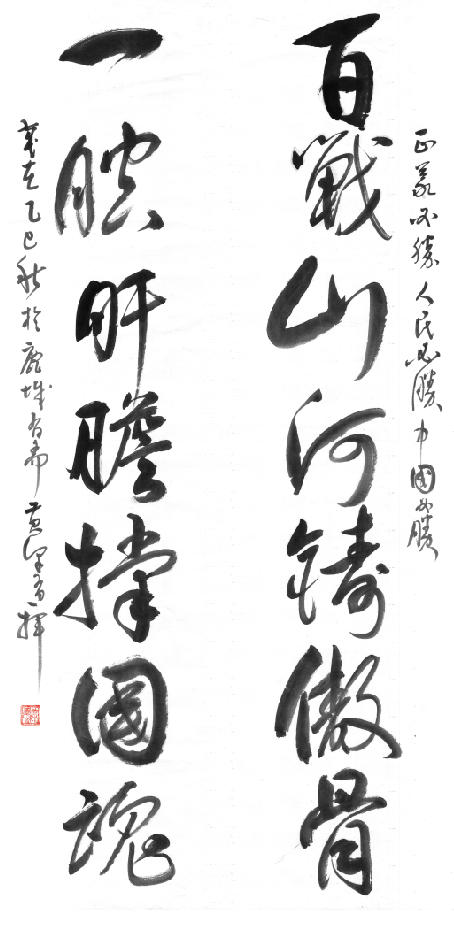 正義必勝人民必勝中國必勝
百戰山河鑄傲骨
一腔肝膽撐國魂
歲在乙巳秋於城齋黃揮